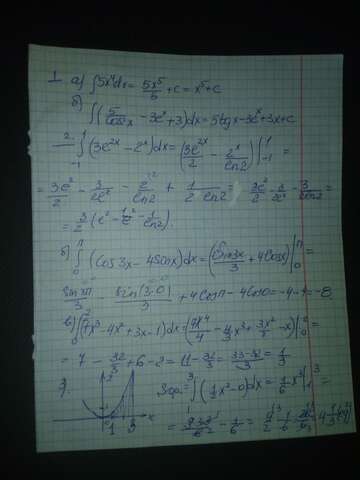 1. а) ∫5x⁴dx = 5x⁵/5 + c = x⁵ + c
б) ∫(5/cos²x − 3eˣ + 3)dx = 5tgx − 3eˣ + 3x + c
2. ∫₋₁¹(3e²ˣ − 2ˣ)dx = (3e²ˣ/2 − 2ˣ/ln2)|₋₁¹ =
= 3e²/2 − 3/2e² − 2/ln2 + 1/2ln2 = 3e²/2 − 3/2e² − 3/2ln2 =
= 3/2 (e² − 1/e² − 1/ln2).
б) ∫₀^π (cos3x − 4sinx)dx = (sin3x/3 + 4cosx)|₀^π
sin3π/3 − sin(3·0)/3 + 4cosπ − 4cos0 = −4−4 = −8
в) ∫₀²(7x³ − 4x² + 3x − 1)dx = (7x⁴/4 − 4/3x³ + 3x²/2 − x)|₀² =
= 7 − 32/3 + 6 − 2 = 11 − 32/3 = 33−32/3 = 1/3
3. Sфр = ∫₁³(1/2x² − 0)dx = 1/6x³|₁³
2
x
0 1 3